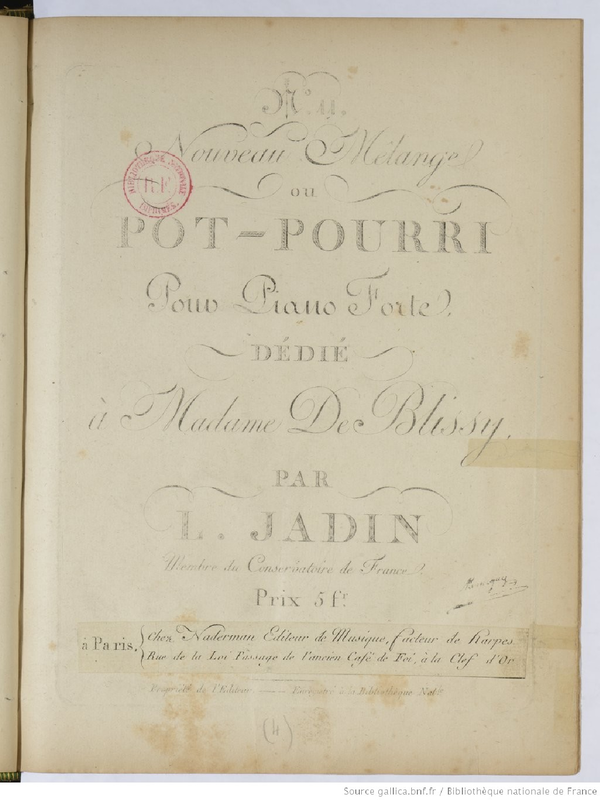 N.º 4.
Nouveau Mélange
ou
POT-POURRI
Pour Piano Forte
DÉDIÉ
à Madame De Blissy,
PAR
L. JADIN
Membre du Conservatoire de France
Prix 5 fᶜ.
à Paris,
Chez Naderman Editeur de Musique, facteur de Harpes
Rue de la Loi Passage de l'ancien Café de Foi, à la Clef d'Or
Propriété de l'Editeur Enregistré à la Bibliothèque Nat.le
(4)
Source gallica.bnf.fr / Bibliothèque nationale de France